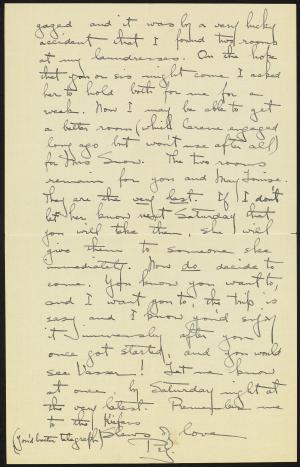 gaged and it was by a very lucky
accident that I found two rooms
at my laundress's. On the hope
that you or sis might come I asked
her to hold both for me for a
week. Now I may be able to get
a better room (which Carine engaged
long ago but won't use after all)
for Mrs Snow. The two rooms
remain for you and May Louise.
They are the very last. If I don't
let her know next Saturday that
you will take them, she will
give them to someone else
immediately. Now do decide to
come. You know you want to,
and I want you to, the trip is
easy and I know you'd enjoy
it immensely after you
once got started, and you would
see Vassar! Let me know
at once, by Saturday night at
the very latest. Remember me
to the Kifers
(You'd better telegraph) Slews of love